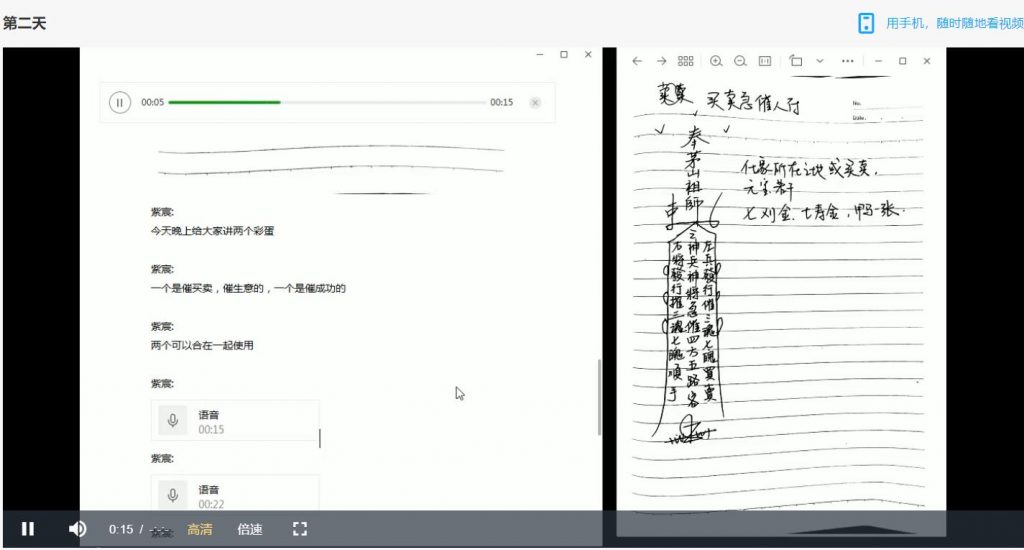 第二天
用手机，随时随地看视频
00:05
00:15
紫宸:
今天晚上给大家讲两个彩蛋
紫宸:
一个是催买卖，催生意的，一个是催成功的
紫宸:
两个可以合在一起使用
紫宸:
语音
00:15
紫宸:
语音
00:22
紫宸:
买卖急催人符
No.
Date.
奉茅山祖師
住家所在之地或买卖.
元宝若干
七刈金.七寿金,
左兵發行催三魂七魄買賣
之神兵神將急催四方五路客
右將發行摧三魂七魄順手
0:15 / -:-
高清
倍速